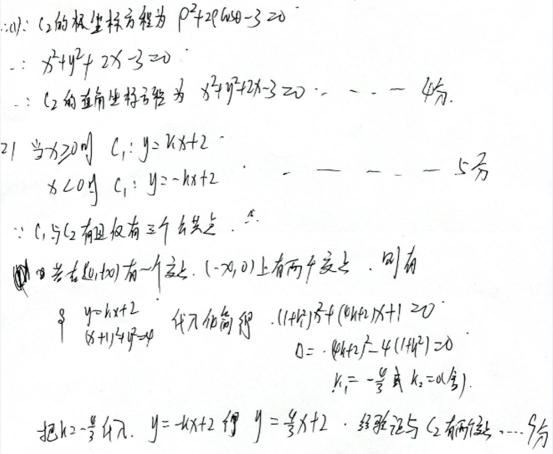 ∴(1): C₂的极坐标方程为 ρ²+2ρcosθ-3=0
∴: x²+y²+2x-3=0
∴: C₂的直角坐标方程为 x²+y²+2x-3=0 ‥ - - - 4分.
2) 当x≥0时 C₁: y=kx+2
x<0时 C₁: y=-kx+2 - - - - - 5分
∵ C₁与C₂有且仅有三个公共点.
① 若在[0,+∞)有一个交点. (-∞,0)上有两个交点. 则有
y=kx+2 (x+1)²+y²=4 代入化简得 (1+k²)x²+(4k+2)x+1=0
Δ= (4k+2)²-4(1+k²)=0
k₁=-4/3 或 k₂=0(舍).
把k=-4/3代入. y=-kx+2得 y=4/3x+2. 经验证与C₂有两个交点 .... 9分